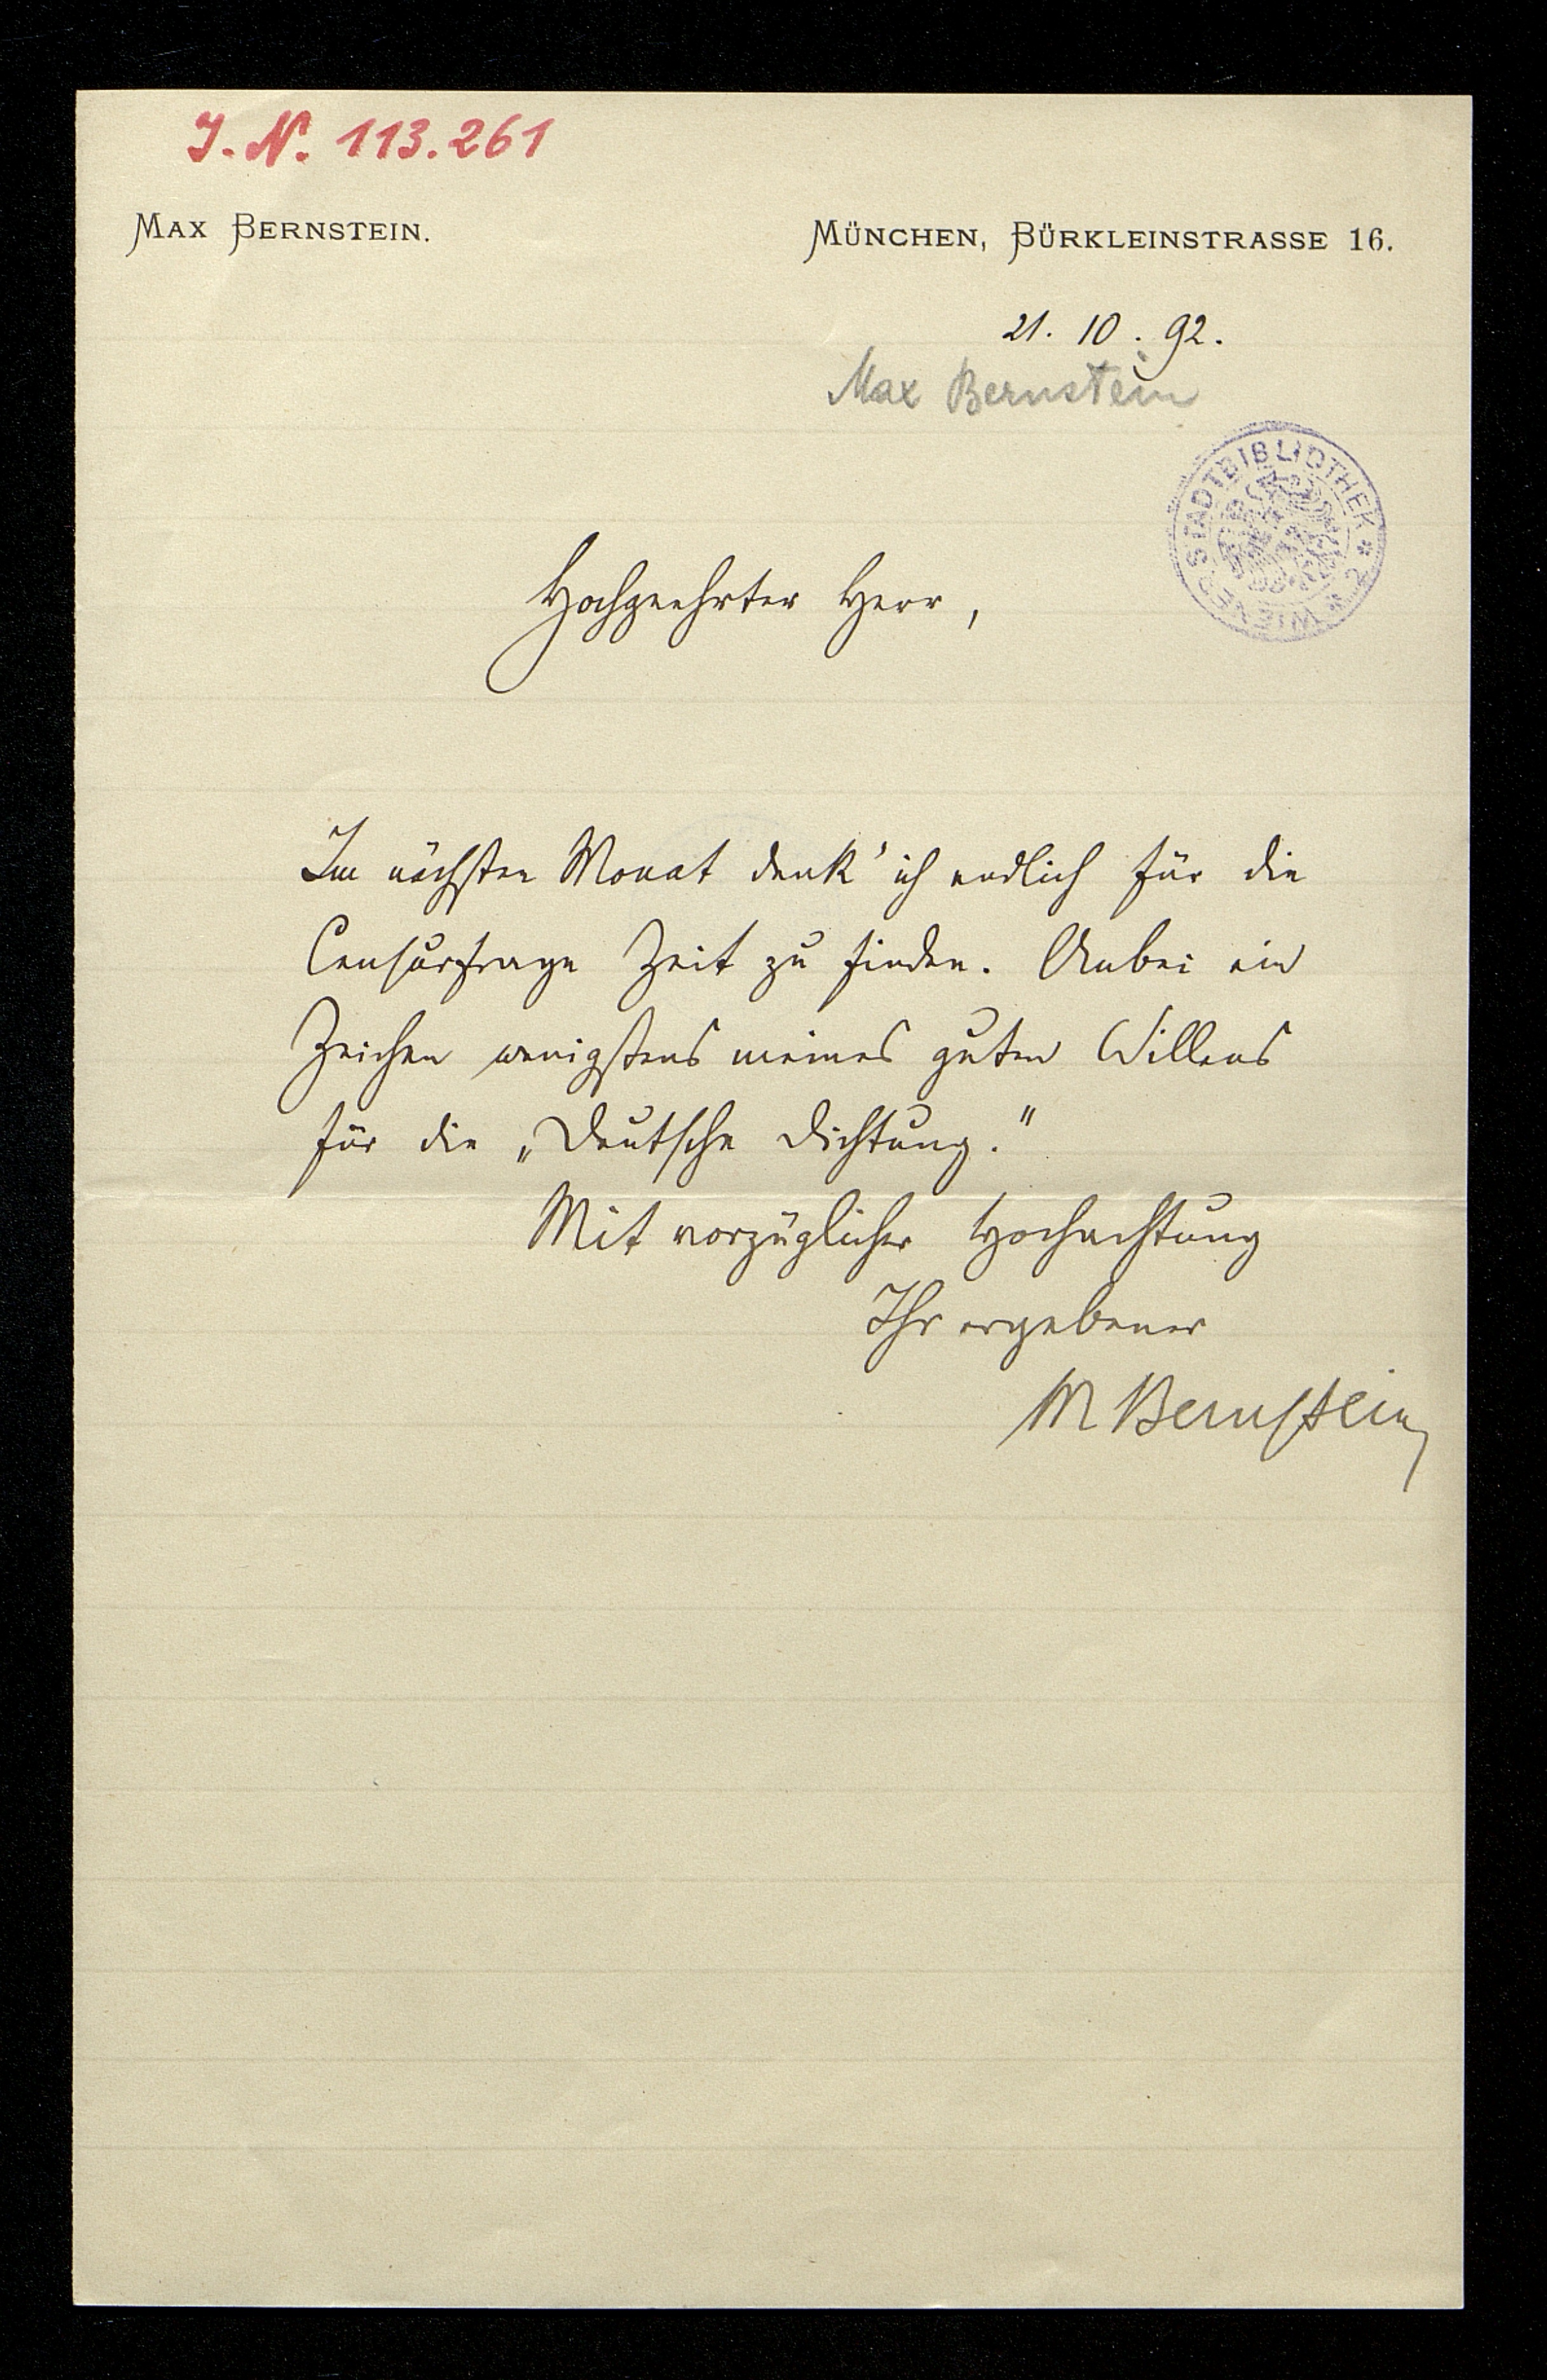 J. N. 113.261
MAX BERNSTEIN.
MÜNCHEN, BÜRKLEINSTRASSE 16.
21. 10. 92.
Max Bernstein
STADTBIBLIOTHEK * 2 * WIENER
Hochgeehrter Herr,
Im nächsten Monat denk' ich endlich für die
Censurfrage Zeit zu finden. Anbei ein
Zeichen wenigstens meines guten Willens
für die „Deutsche Dichtung."
Mit vorzüglicher Hochachtung
Ihr ergebener
M Bernstein